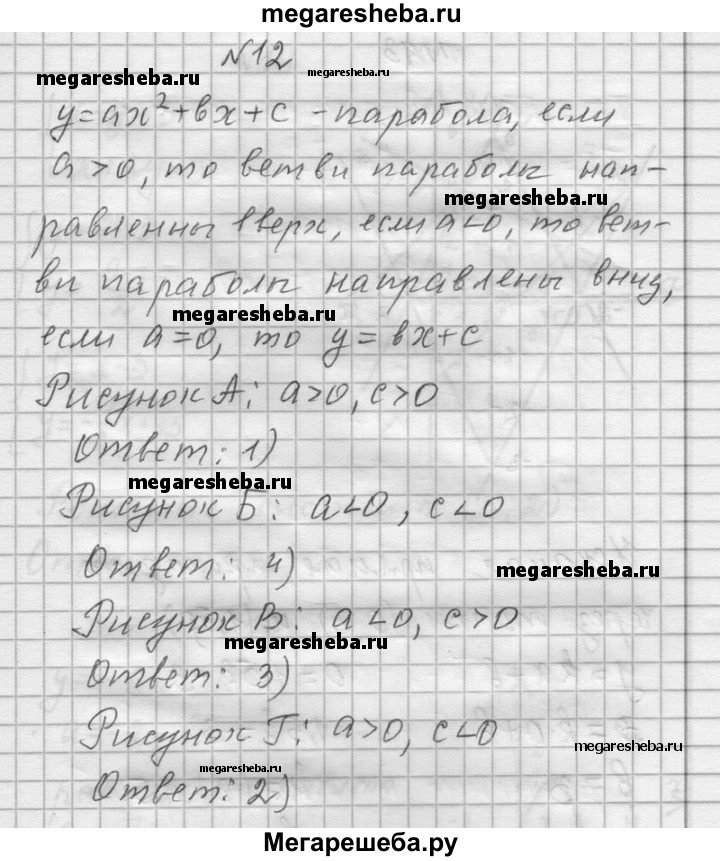 megaresheba.ru
№12
megaresheba.ru
megaresheba.ru
y=ax²+вx+c - парабола, если
a >0, то ветви параболы нап-
megaresheba.ru
равленны вверх, если a<0, то вет-
ви параболы направлены вниз,
megaresheba.ru
если a=0, то y=вx+c
Рисунок А: a>0, c>0
Ответ: 1)
megaresheba.ru
Рисунок Б: a<0, c<0
Ответ: 4)
megaresheba.ru
Рисунок В: a<0, c>0
megaresheba.ru
Ответ: 3)
Рисунок Г: a>0, c<0
megaresheba.ru
megaresheba.ru
Ответ: 2)
Мегарешеба.ру